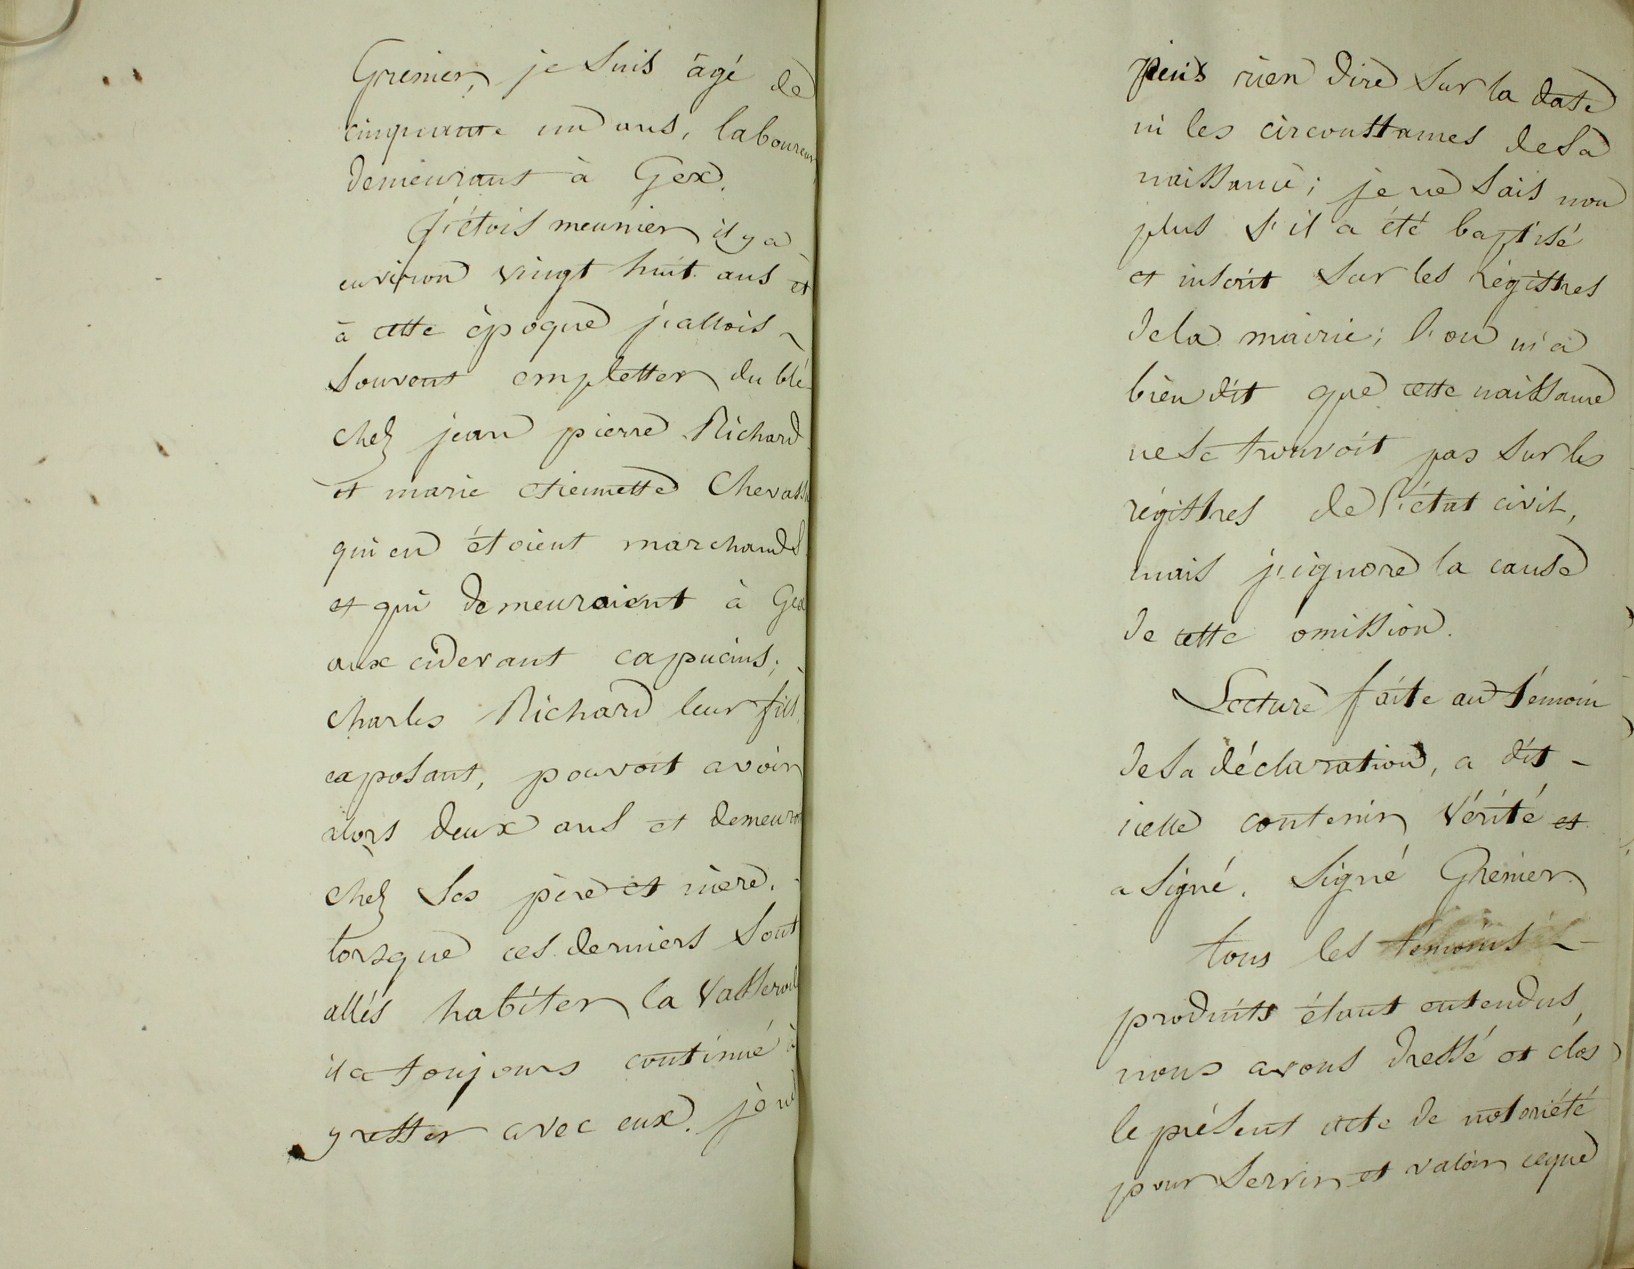 Grenier, je suis âgé de
cinquante un ans, laboureur
demeurant à Gex.
J'étois meunier il y a
environ vingt huit ans et
à cette époque j'allois
souvent empletter du blé
chez jean pierre Richard
et marie etiennette Chevass
qui en étoient marchands
et qui demeuroient à Gex
aux cidevant capucins;
charles Richard leur fils,
exposant, pouvoit avoir
alors deux ans et demeuroi
chez ses père et mère.
lorsque ces derniers sont
allés habiter la Vasserode
il a toujours continué à
y rester avec eux. je ne
puis rien dire sur la date
ni les circonstances de sa
naissance; je ne sais non
plus s'il a été baptisé
et inscrit sur les régistres
de la mairie; l'on m'a
bien dit que cette naissance
ne se trouvoit pas sur les
régistres de l'état civil,
mais j'ignore la cause
de cette omission.
Lecture faite au témoin
de sa déclaration, a dit -
icelle contenir vérité et
a signé. Signé Grenier
tous les témoins -
produits étant entendus,
nous avons dressé et clos
le présent acte de notoriété
pour servir et valoir ceque